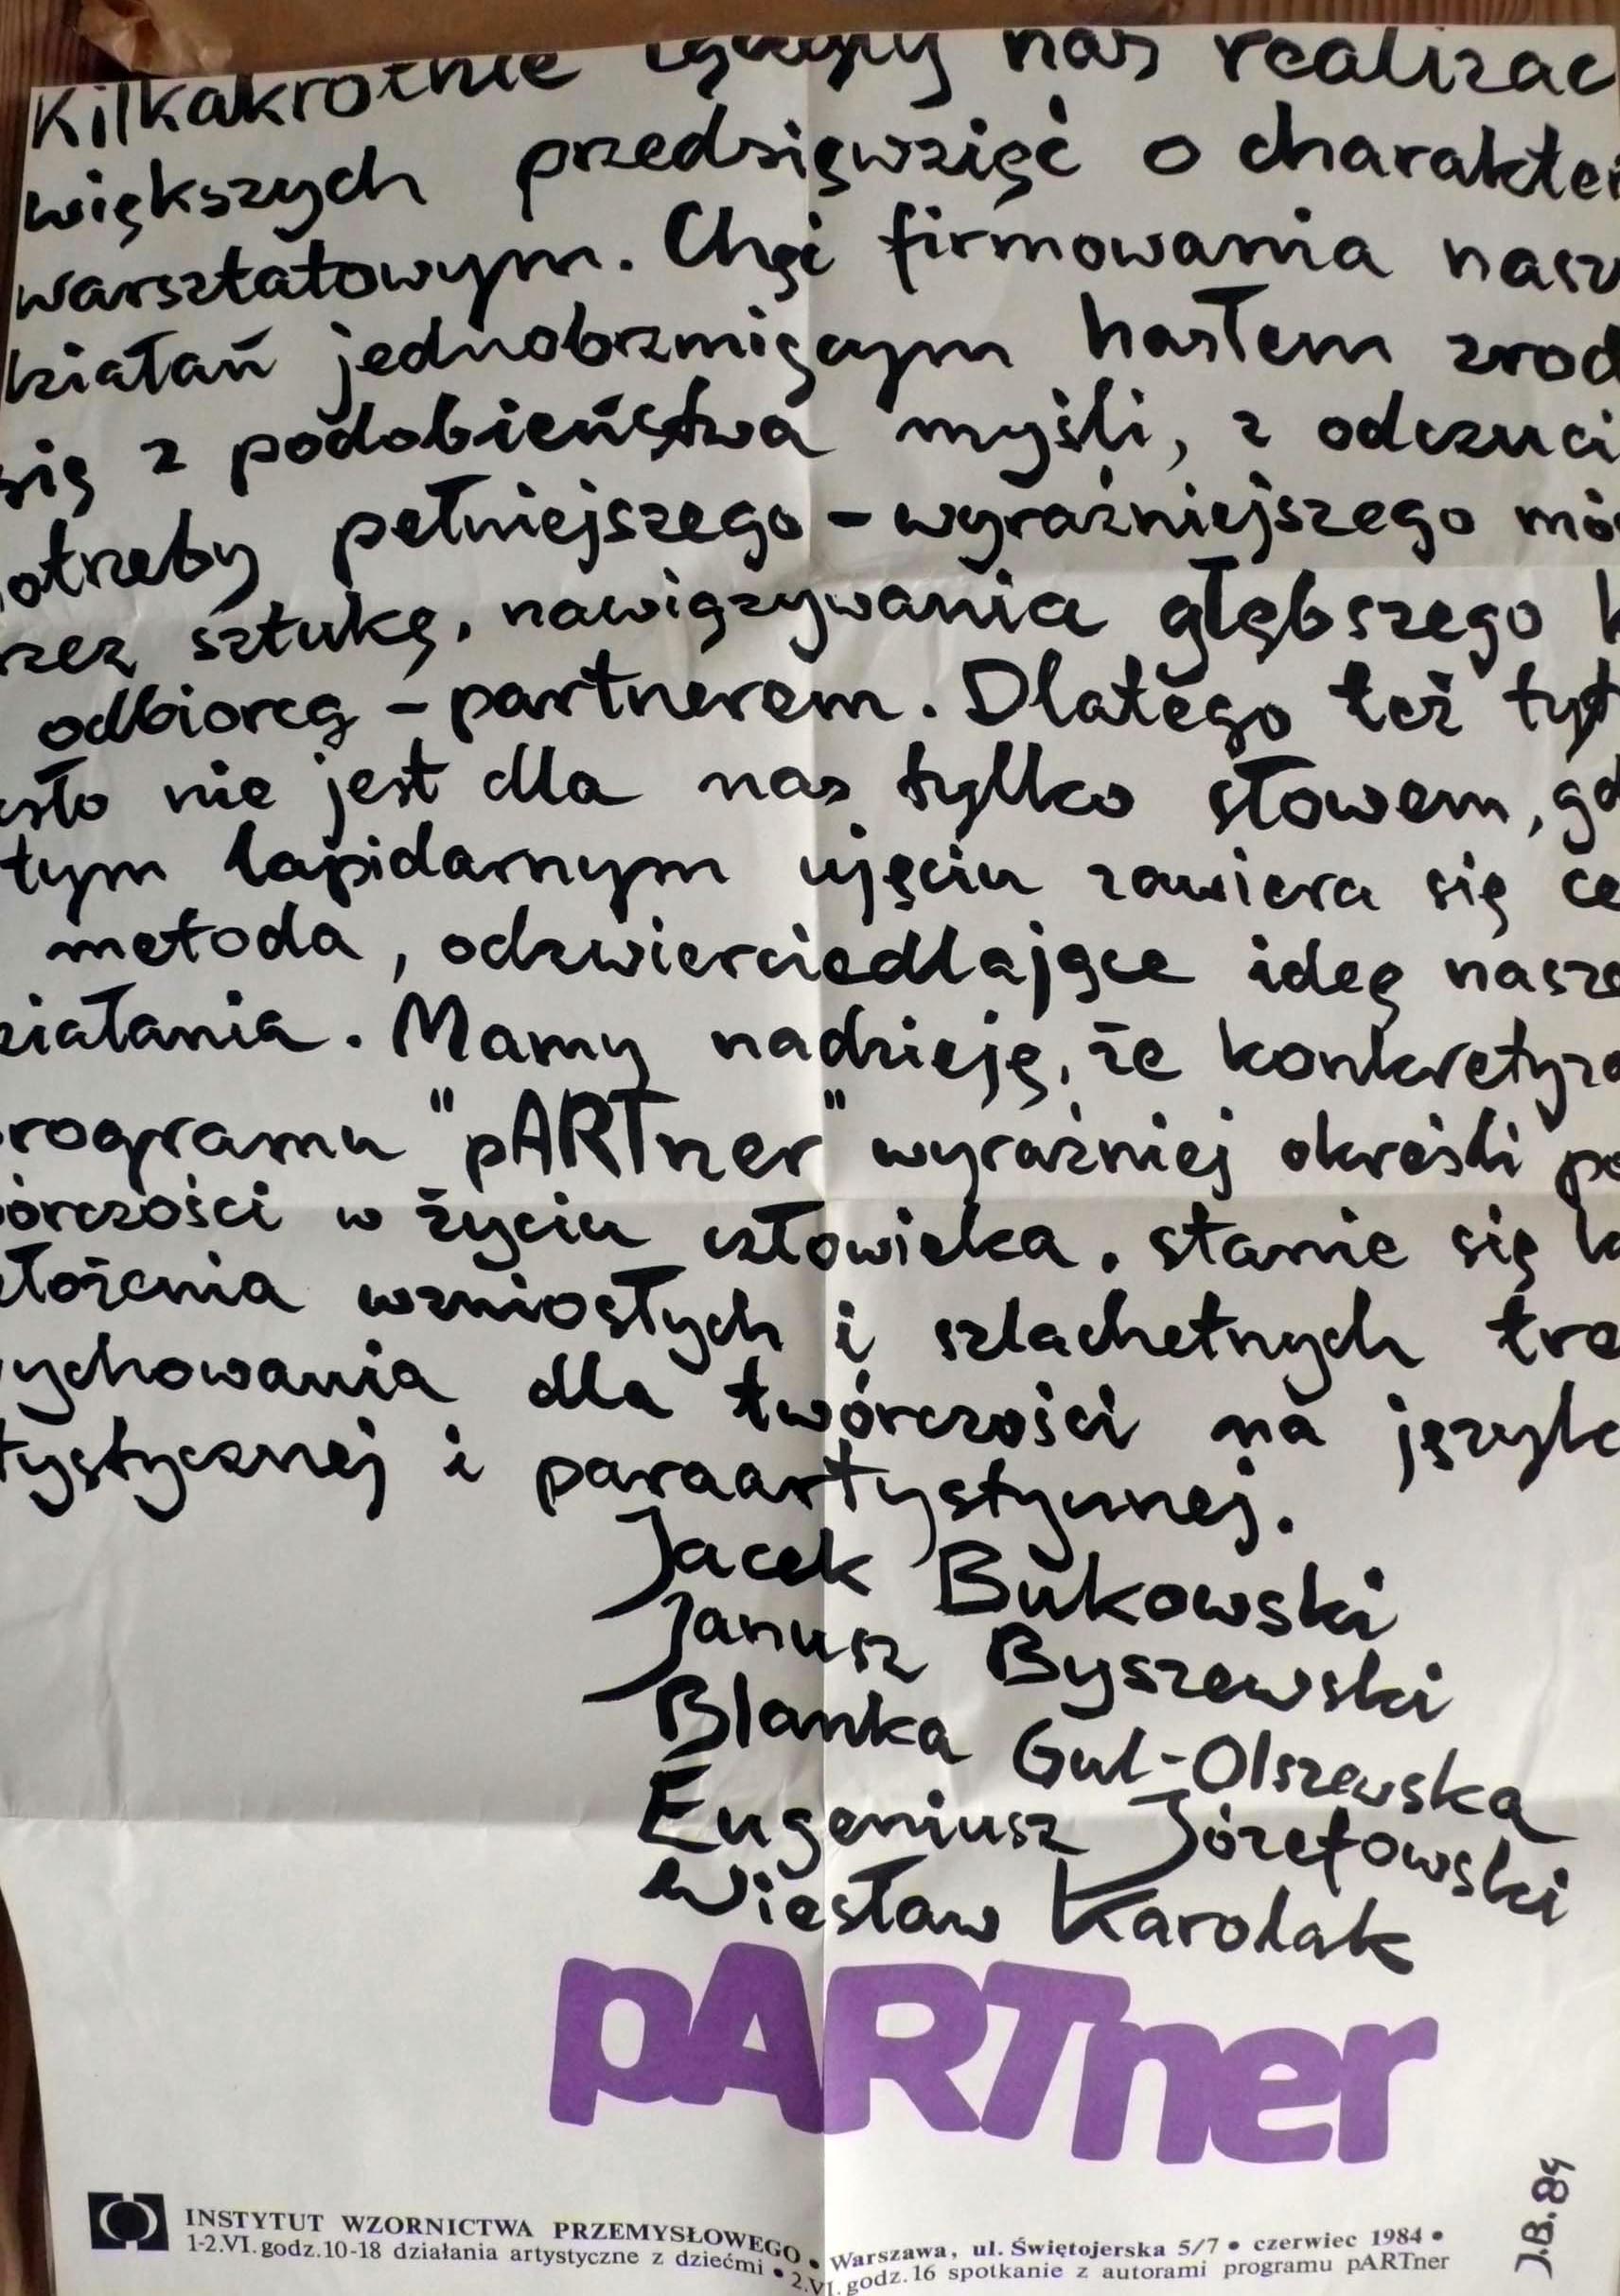 Kilkakrotnie łączyły nas realizac
większych przedsięwzięć o charakter
warsztatowym. Chęć firmowania nasz
działań jednobrzmiącym hasłem zrod
się z podobieństwa myśli, z odczuci
otrzeby pełniejszego - wyraźniejszego mó
rzez sztukę, nawiązywania głębszego k
odbiorcą - partnerem. Dlatego też tyt
sło nie jest dla nas tylko słowem, gd
tym lapidarnym ujęciu zawiera się ce
metoda, odzwierciedlające ideę nasze
ziałania. Mamy nadzieję, że konkretyza
rogramu "pARTner" wyraźniej określi po
órczości w życiu człowieka, stanie się k
ełożenia wzniosłych i szlachetnych tre
ychowania dla twórczości na język
tystycznej i paraartystycznej.
Jacek Bukowski
Janusz Byszewski
Blanka Gul-Olszewska
Eugeniusz Józefowski
Wiesław Karolak
pARTner
INSTYTUT WZORNICTWA PRZEMYSŁOWEGO • Warszawa, ul. Świętojerska 5/7 • czerwiec 1984 •
1-2.VI.godz.10-18 działania artystyczne z dziećmi • 2.VI.godz.16 spotkanie z autorami programu pARTner
J.B.84